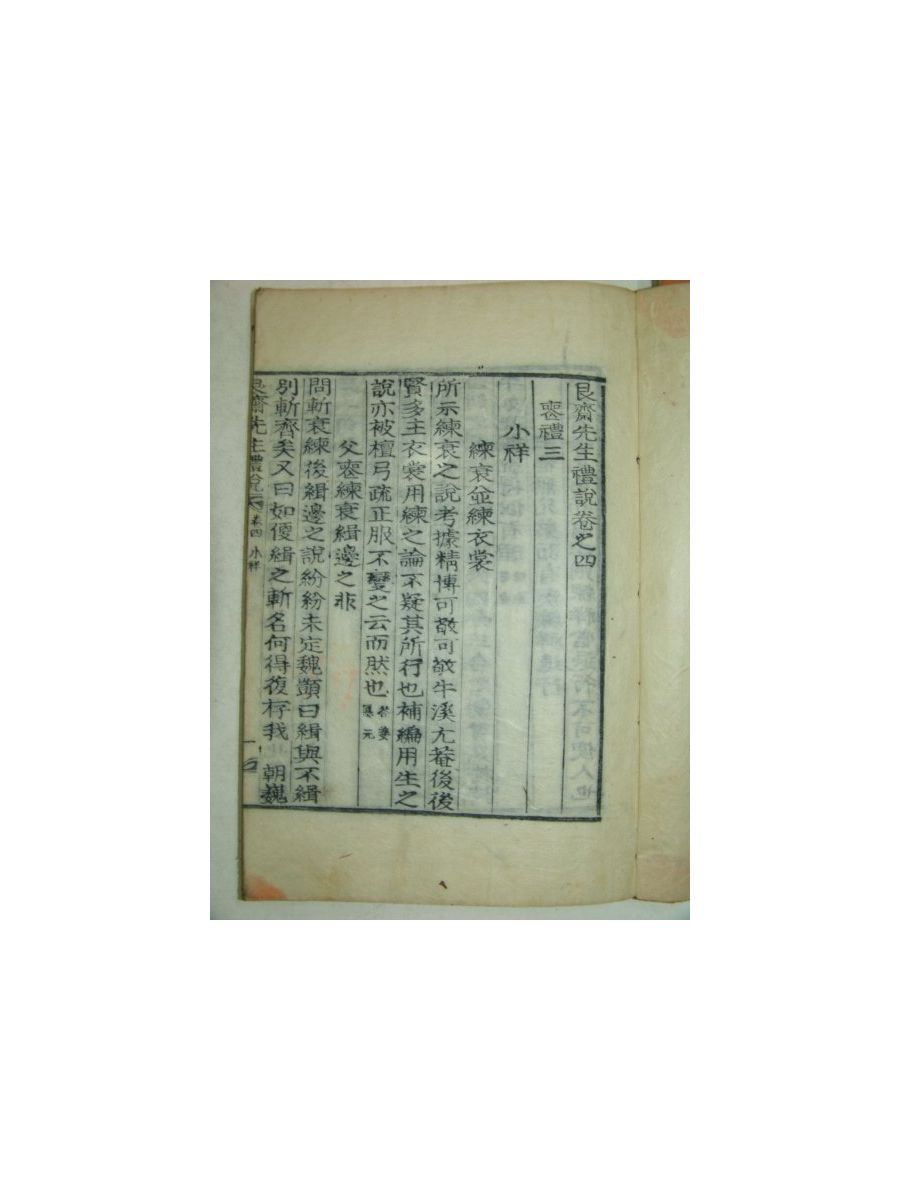 艮齋先生禮說卷之四
喪禮三
小祥
練衰並練衣裳
所示練衰之說考據精博可敬可敬牛溪尤菴後後
賢多主衣裳用練之論不疑其所行也補編用生之
說亦被檀弓疏正服不變之云而然也 答姜
父喪練衰緝邊之非
問斬衰練後緝邊之說紛紛未定魏顗曰緝與不緝
別斬齊矣又曰如便緝之斬名何得復存我 朝巍
艮齋先生禮說 卷四 小祥